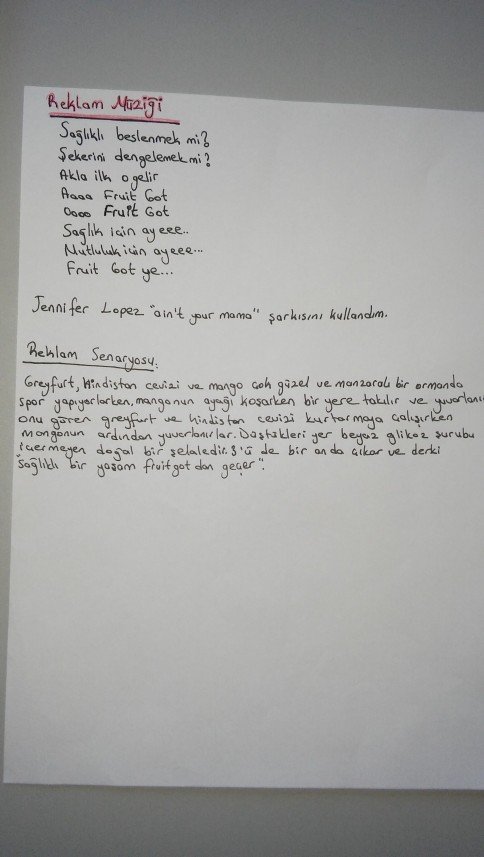 Reklam Müziği
Sağlıklı beslenmek mi?
Şekerini dengelemek mi?
Akla ilk o gelir
Aaaa Fruit Got
Oooo Fruit Got
Sağlık için ayeee..
Mutluluk için ayeee...
Fruit Got ye...
Jennifer Lopez "ain't your mama" şarkısını kullandım.
Reklam Senaryosu:
Greyfurt, hindistan cevizi ve mango çok güzel ve manzaralı bir ormanda
spor yapıyorlarken, mangonun ayağı koşarken bir yere takılır ve yuvarlanır
onu gören greyfurt ve hindistan cevizi kurtarmaya çalışırken
mangonun ardından yuvarlanırlar. Düştükleri yer beyaz glikoz şurubu
içermeyen doğal bir şelaledir. 3'ü de bir anda çıkar ve derki
"Sağlıklı bir yaşam fruitgot dan geçer".